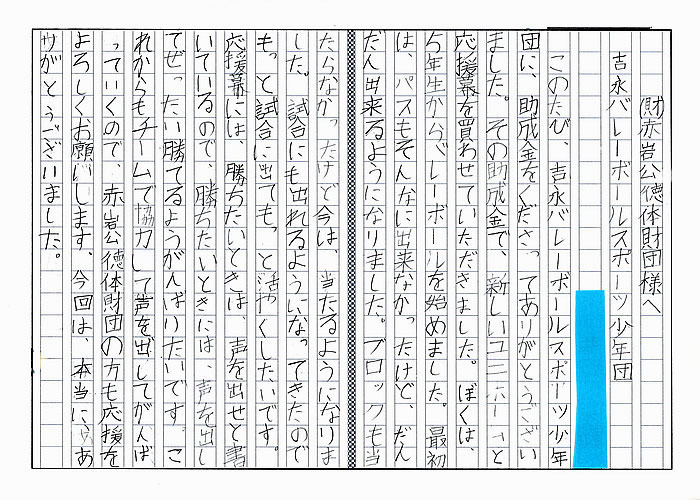 (財)赤岩公徳体財団様へ
吉永バレーボールスポーツ少年団
このたび、吉永バレーボールスポーツ少年
団に、助成金をくださってありがとうござい
ました。その助成金で、新しいユニホームと
応援幕を買わせていただきました。ぼくは、
5年生からバレーボールを始めました。最初
は、パスもそんなに出来なかったけど、だん
だん出来るようになりました。ブロックも当
たらなかったけど今は、当たるようになりま
した。試合にも出れるようになってきたので
もっと試合に出てもっと活やくしたいです。
応援幕には、勝ちたいときは、声を出せと書
いているので、勝ちたいときには、声を出し
てぜったい勝てるようがんばりたいです。こ
れからもチームで協力して声を出してがんば
っていくので、赤岩公徳体財団の方も応援を
よろしくお願いします。今回は、本当にあ
りがとうございました。